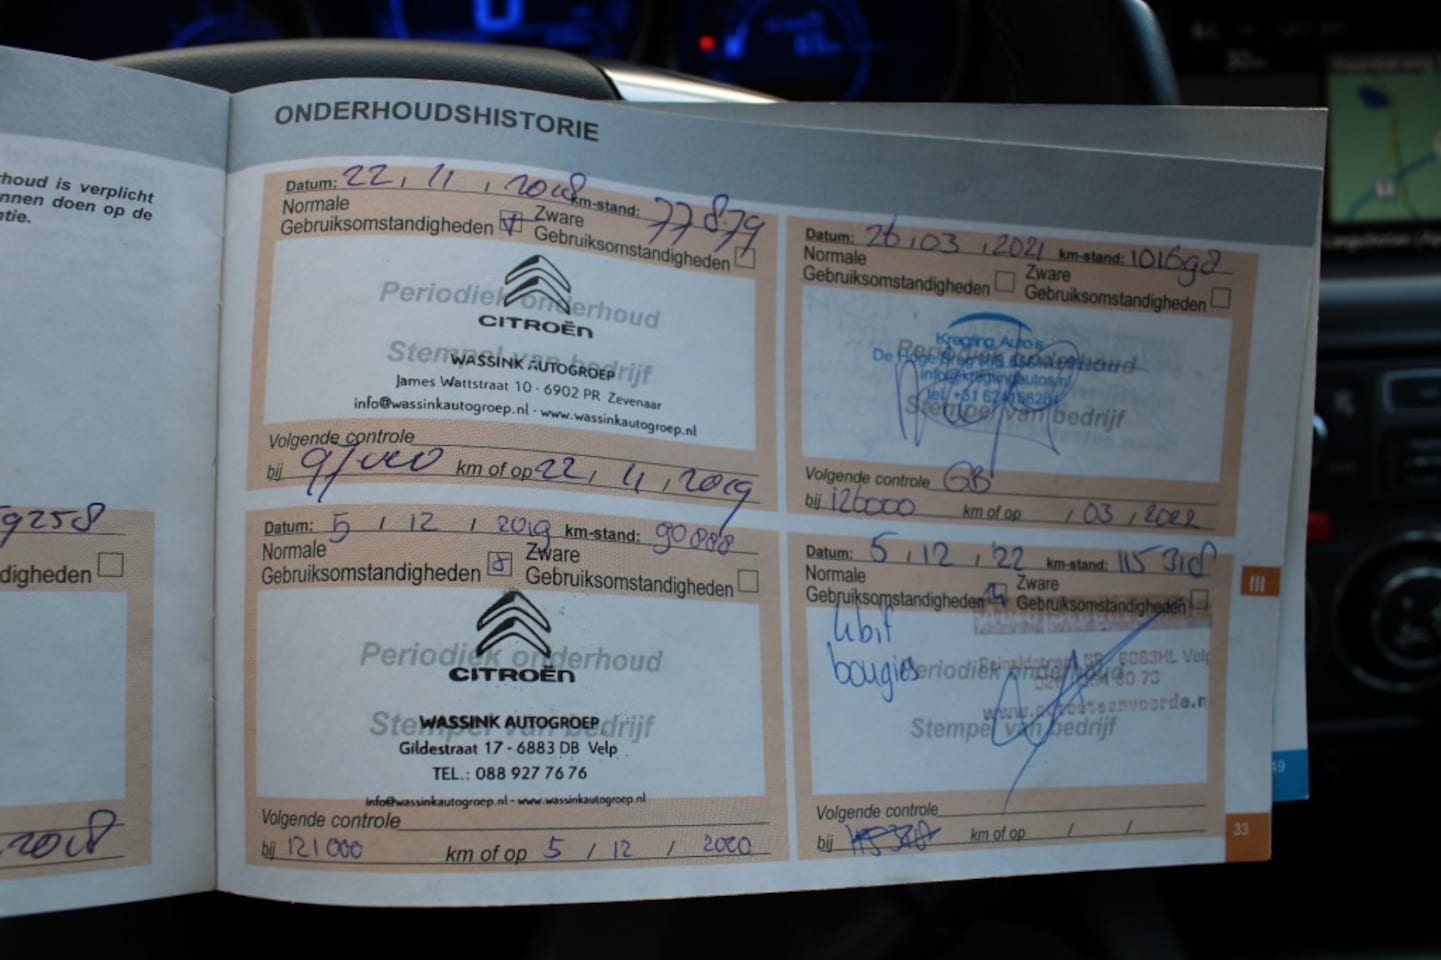 ONDERHOUDSHISTORIE
houd is verplicht
nnen doen op de
ntie.
digheden
2018
Datum: 22 / 11 / 2018 km-stand: 77879
Normale
Gebruiksomstandigheden
Zware
Gebruiksomstandigheden
Periodiek onderhoud
CITROËN
Stempel van bedrijf
WASSINK AUTOGROEP
James Wattstraat 10 - 6902 PR Zevenaar
info@wassinkautogroep.nl - www.wassinkautogroep.nl
Volgende controle
bij 97000 km of op 22 / 11 / 2019
Datum: 5 / 12 / 2019 km-stand: 90888
Normale
Gebruiksomstandigheden
Zware
Gebruiksomstandigheden
Periodiek onderhoud
CITROËN
Stempel van bedrijf
WASSINK AUTOGROEP
Gildestraat 17 - 6883 DB Velp
TEL.: 088 927 76 76
info@wassinkautogroep.nl - www.wassinkautogroep.nl
Volgende controle
bij 121000 km of op 5 / 12 / 2020
Datum: 26 / 03 / 2021 km-stand: 101698
Normale
Gebruiksomstandigheden
Zware
Gebruiksomstandigheden
Periodiek onderhoud
Stempel van bedrijf
Volgende controle GB
bij 126000 km of op / 03 / 2022
Datum: 5 / 12 / '22 km-stand: 115318
Normale
Gebruiksomstandigheden
Zware
Gebruiksomstandigheden
bougies
Periodiek onderhoud
Stempel van bedrijf
Volgende controle
bij km of op / /
III
49
33